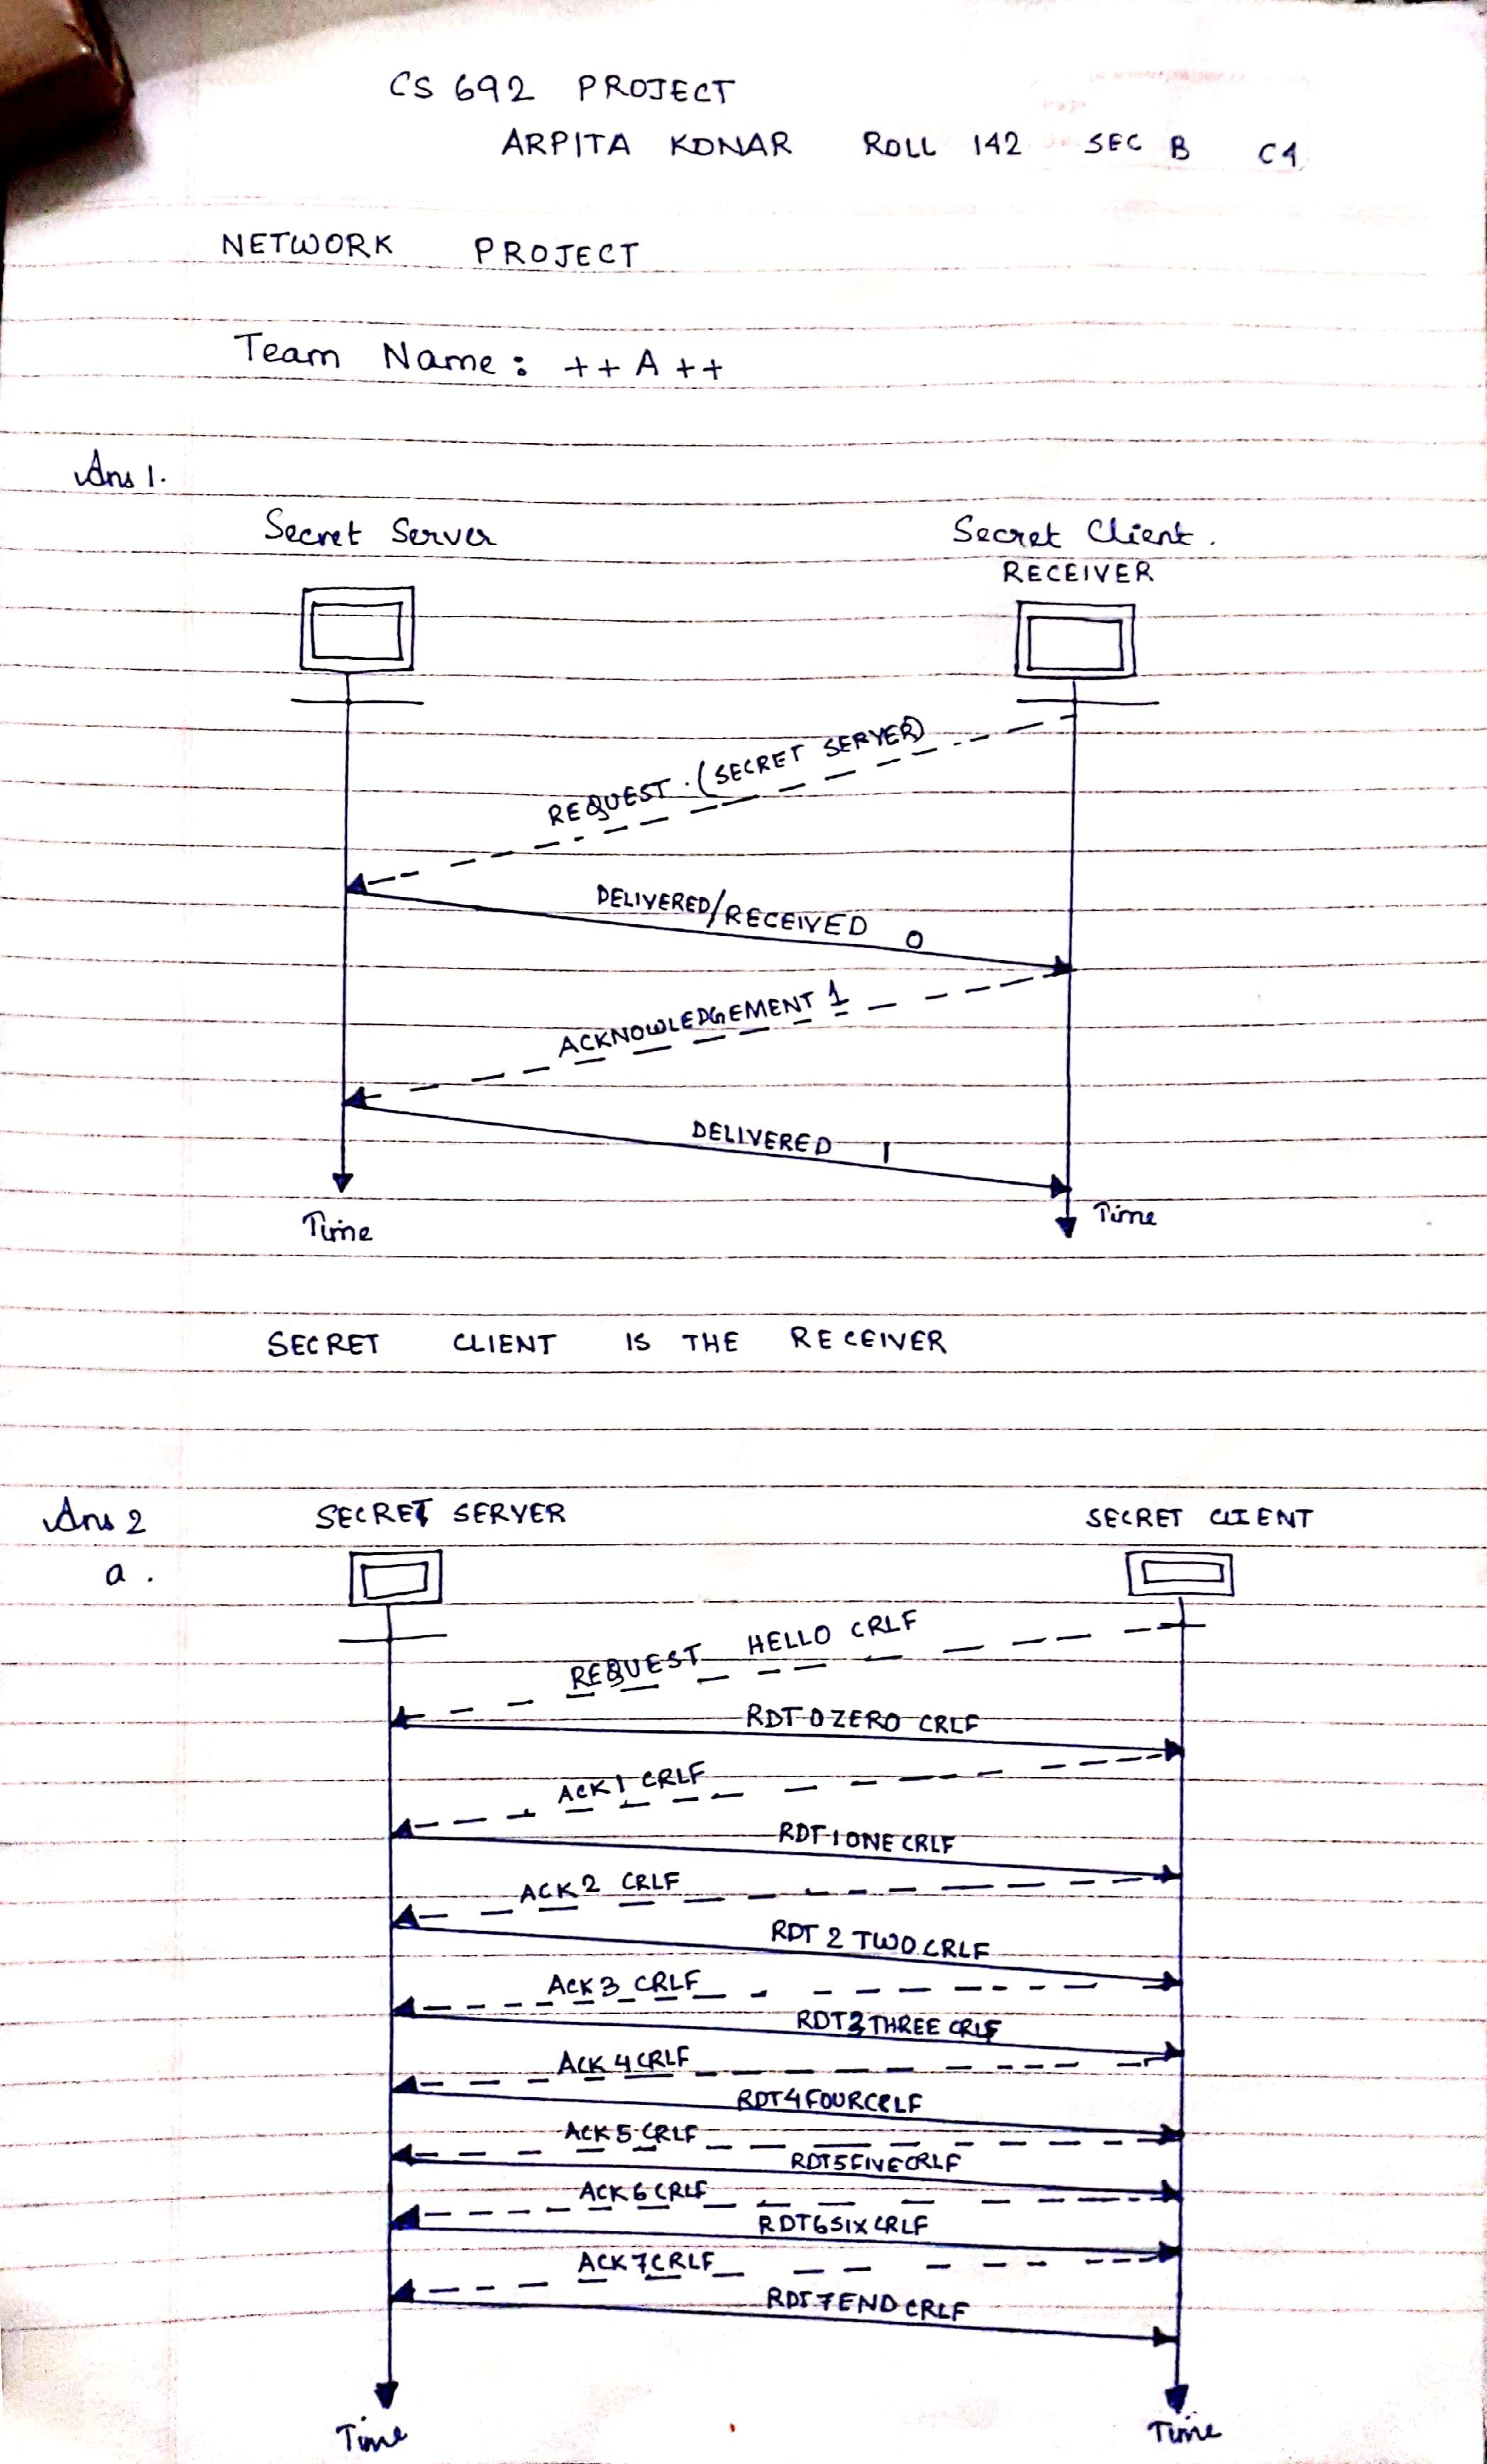 CS 692 PROJECT
ARPITA KONAR ROLL 142 SEC B C1
NETWORK PROJECT
Team Name: ++A++
Ans 1.
Secret Server Secret Client.
RECEIVER
REQUEST.(SECRET SERVER)
DELIVERED/RECEIVED 0
ACKNOWLEDGEMENT 1
DELIVERED 1
Time Time
SECRET CLIENT IS THE RECEIVER
Ans 2 SECRET SERVER SECRET CLIENT
a.
REQUEST HELLO CRLF
RDT 0 ZERO CRLF
ACK 1 CRLF
RDT 1 ONE CRLF
ACK 2 CRLF
RDT 2 TWO CRLF
ACK 3 CRLF
RDT 3 THREE CRLF
ACK 4 CRLF
RDT 4 FOUR CRLF
ACK 5 CRLF
RDT 5 FIVE CRLF
ACK 6 CRLF
RDT 6 SIX CRLF
ACK 7 CRLF
RDT 7 END CRLF
Time Time